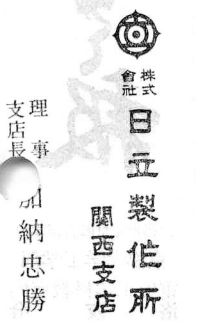 株式
會社
日立製作所
關西支店
理事
支店長
加納忠勝